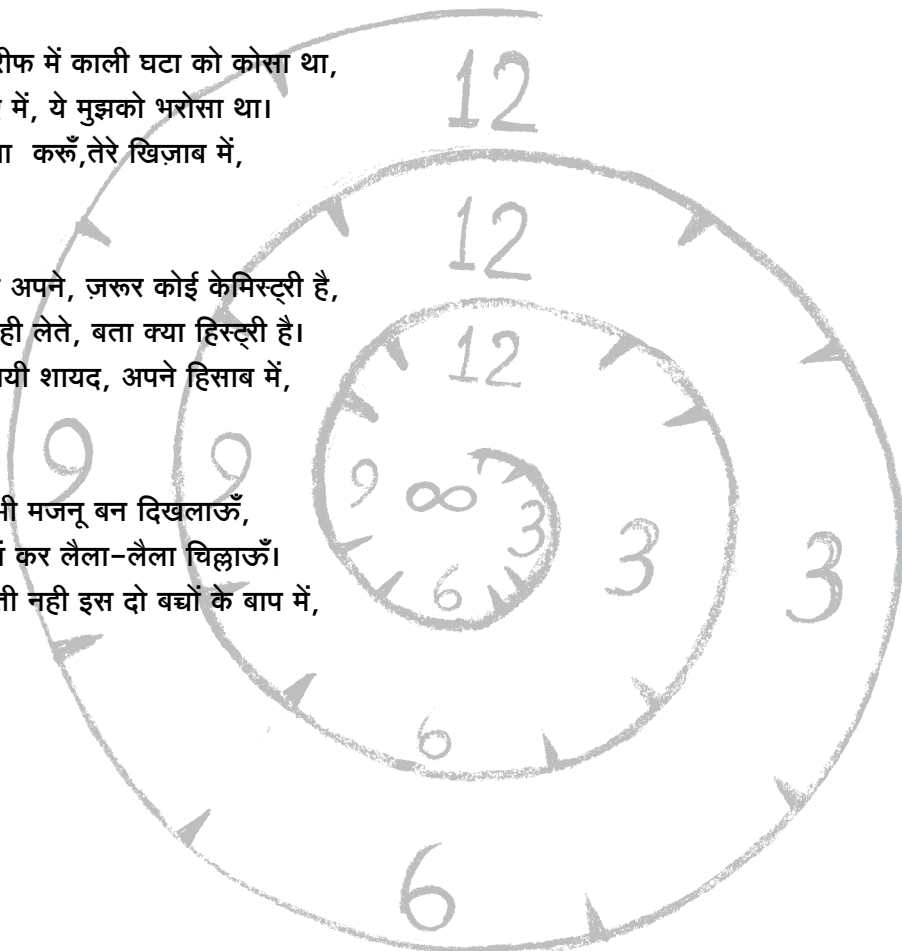 में काली घटा को कोसा था,
में, ये मुझको भरोसा था।
करूँ,तेरे खिज़ाब में,
अपने, ज़रूर कोई केमिस्ट्री है,
ही लेते, बता क्या हिस्ट्री है।
शायद, अपने हिसाब में,
मजनू बन दिखलाऊँ,
कर लैला-लैला चिल्लाऊँ।
नही इस दो बच्चों के बाप में,
12
12
12
9
9
9
∞
3
3
3
6
6
6